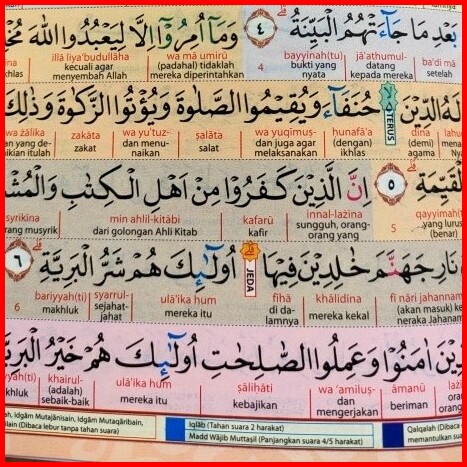 بَعْدِ مَا جَاۤءَتْهُمُ الْبَيِّنَةُ ۗ ٤ وَمَآ اُمِرُوْٓا اِلَّا لِيَعْبُدُوا اللّٰهَ
ba'di mā jā'athumul- bayyinah(tu) wa mā umirū illā liya'budullāha
setelah datang kepada mereka bukti yang nyata 4 (padahal) tidaklah mereka diperintahkan kecuali agar menyembah Allah
لَهُ الدِّيْنَ TERUS حُنَفَاۤءَ وَيُقِيْمُوا الصَّلٰوةَ وَيُؤْتُوا الزَّكٰوةَ وَذٰلِكَ
dīna ḥunafā'a wa yuqīmuṣ- ṣalāta wa yu'tuz- zakāta wa żālika
(demi) agama (dengan) ikhlas dan juga agar melaksanakan salat dan menu-naikan zakat
الْقَيِّمَةِ ۗ ٥ اِنَّ الَّذِيْنَ كَفَرُوْا مِنْ اَهْلِ الْكِتٰبِ
qayyimah(ti) innal-lażīna kafarū min ahlil-kitābi
yang lurus (benar) 5 sungguh, orang-orang yang kafir dari golongan Ahli Kitab orang musyrik
نَارِ جَهَنَّمَ خٰلِدِيْنَ فِيْهَا JEDA اُولٰۤىِٕكَ هُمْ شَرُّ الْبَرِيَّةِ ۗ ٦
fī nāri jahannama khālidīna fīhā ulā'ika hum syarrul- bariyyah(ti)
(akan masuk) ke neraka Jahanam mereka kekal di da-lamnya mereka itu sejahat-jahat makhluk 6
اٰمَنُوْا وَعَمِلُوا الصّٰلِحٰتِ اُولٰۤىِٕكَ هُمْ خَيْرُ
āmanū wa 'amiluṣ- ṣāliḥāti ulā'ika hum khairul-
beriman dan mengerjakan kebajikan mereka itu (adalah) sebaik-baik
Idgām Mutajānisain, Idgām Mutaqāribain, Iqlāb (Tahan suara 2 harakat)
(Dibaca lebur tanpa tahan suara) Madd Wājib Muttaṣil (Panjangkan suara 4/5 harakat)